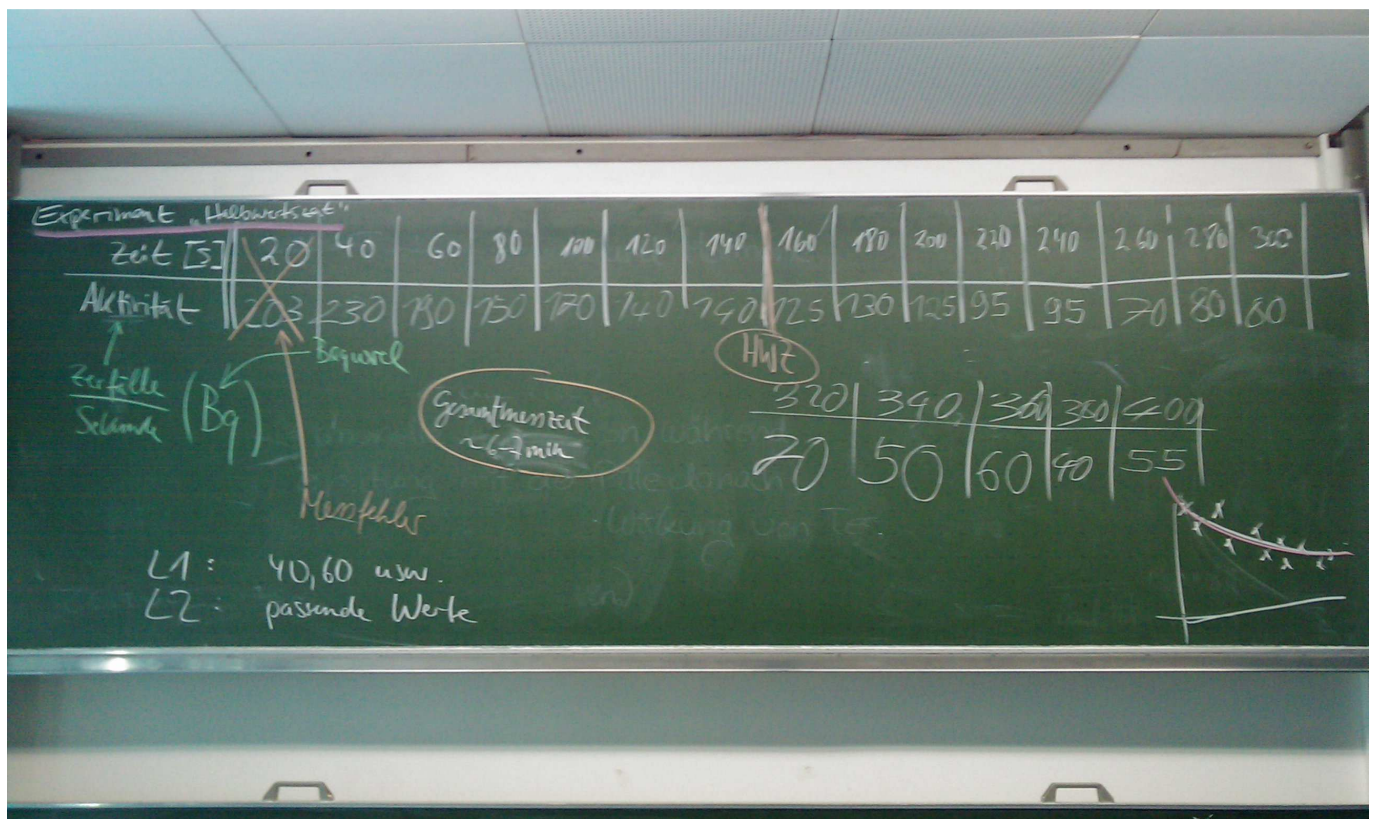 Experiment „Halbwertszeit"
Zeit [s] 20 40 60 80 100 120 140 160 180 200 220 240 260 280 300
Aktivität 203 230 190 150 170 140 140 125 130 125 95 95 70 80 60
HWZ
Bequerel
Zerfälle
Sekunde (Bq)
Gesamtmesszeit
~6-7 min
320 340 360 380 400
20 50 60 40 55
Messfehler
L1: 40,60 usw.
L2: passende Werte